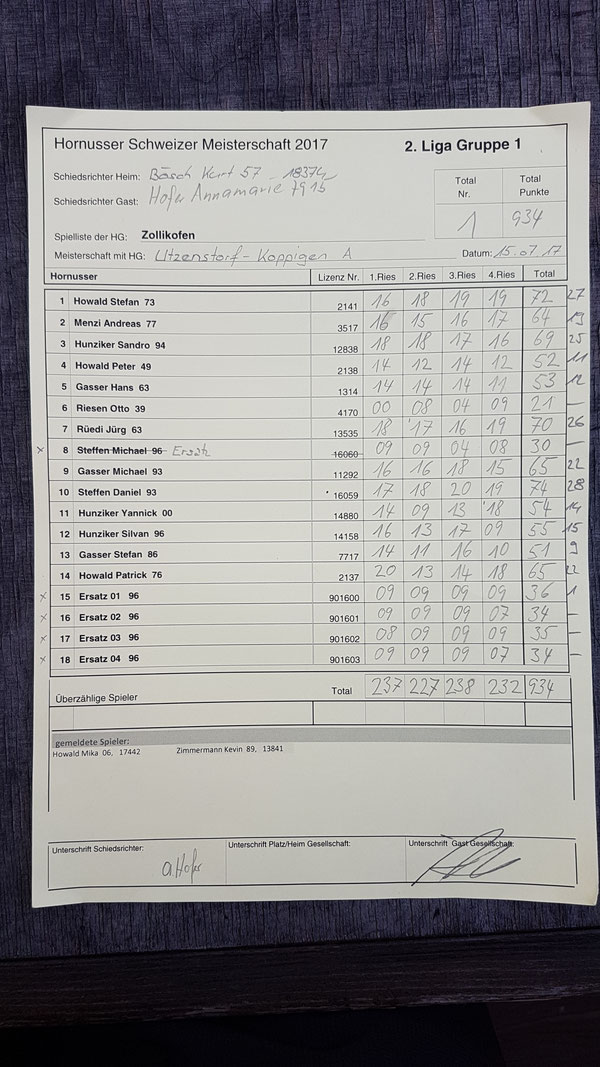 Hornusser Schweizer Meisterschaft 2017 2. Liga Gruppe 1
Schiedsrichter Heim: Bösch Kurt 57 - 18374
Schiedsrichter Gast: Hofer Annamarie 7915
Total Nr. Total Punkte
1 934
Spielliste der HG: Zollikofen
Meisterschaft mit HG: Utzenstorf - Koppigen A Datum: 15.07.17
Hornusser Lizenz Nr. 1.Ries 2.Ries 3.Ries 4.Ries Total
1 Howald Stefan 73 2141 16 18 19 19 72 27
2 Menzi Andreas 77 3517 16 15 16 17 64 19
3 Hunziker Sandro 94 12838 18 18 17 16 69 25
4 Howald Peter 49 2138 14 12 14 12 52 11
5 Gasser Hans 63 1314 14 14 14 11 53 12
6 Riesen Otto 39 4170 00 08 04 09 21 –
7 Rüedi Jürg 63 13535 18 17 16 19 70 26
x 8 Steffen Michael 96 Ersatz 16060 09 09 04 08 30 –
9 Gasser Michael 93 11292 16 16 18 15 65 22
10 Steffen Daniel 93 16059 17 18 20 19 74 28
11 Hunziker Yannick 00 14880 14 09 13 18 54 14
12 Hunziker Silvan 96 14158 16 13 17 09 55 15
13 Gasser Stefan 86 7717 14 11 16 10 51 9
14 Howald Patrick 76 2137 20 13 14 18 65 22
x 15 Ersatz 01 96 901600 09 09 09 09 36 1
x 16 Ersatz 02 96 901601 09 09 09 07 34 –
x 17 Ersatz 03 96 901602 08 09 09 09 35 –
x 18 Ersatz 04 96 901603 09 09 09 07 34 –
Überzählige Spieler Total 237 227 238 232 934
gemeldete Spieler:
Howald Mika 06, 17442 Zimmermann Kevin 89, 13841
Unterschrift Schiedsrichter: Unterschrift Platz/Heim Gesellschaft: Unterschrift Gast Gesellschaft:
a. Hofer